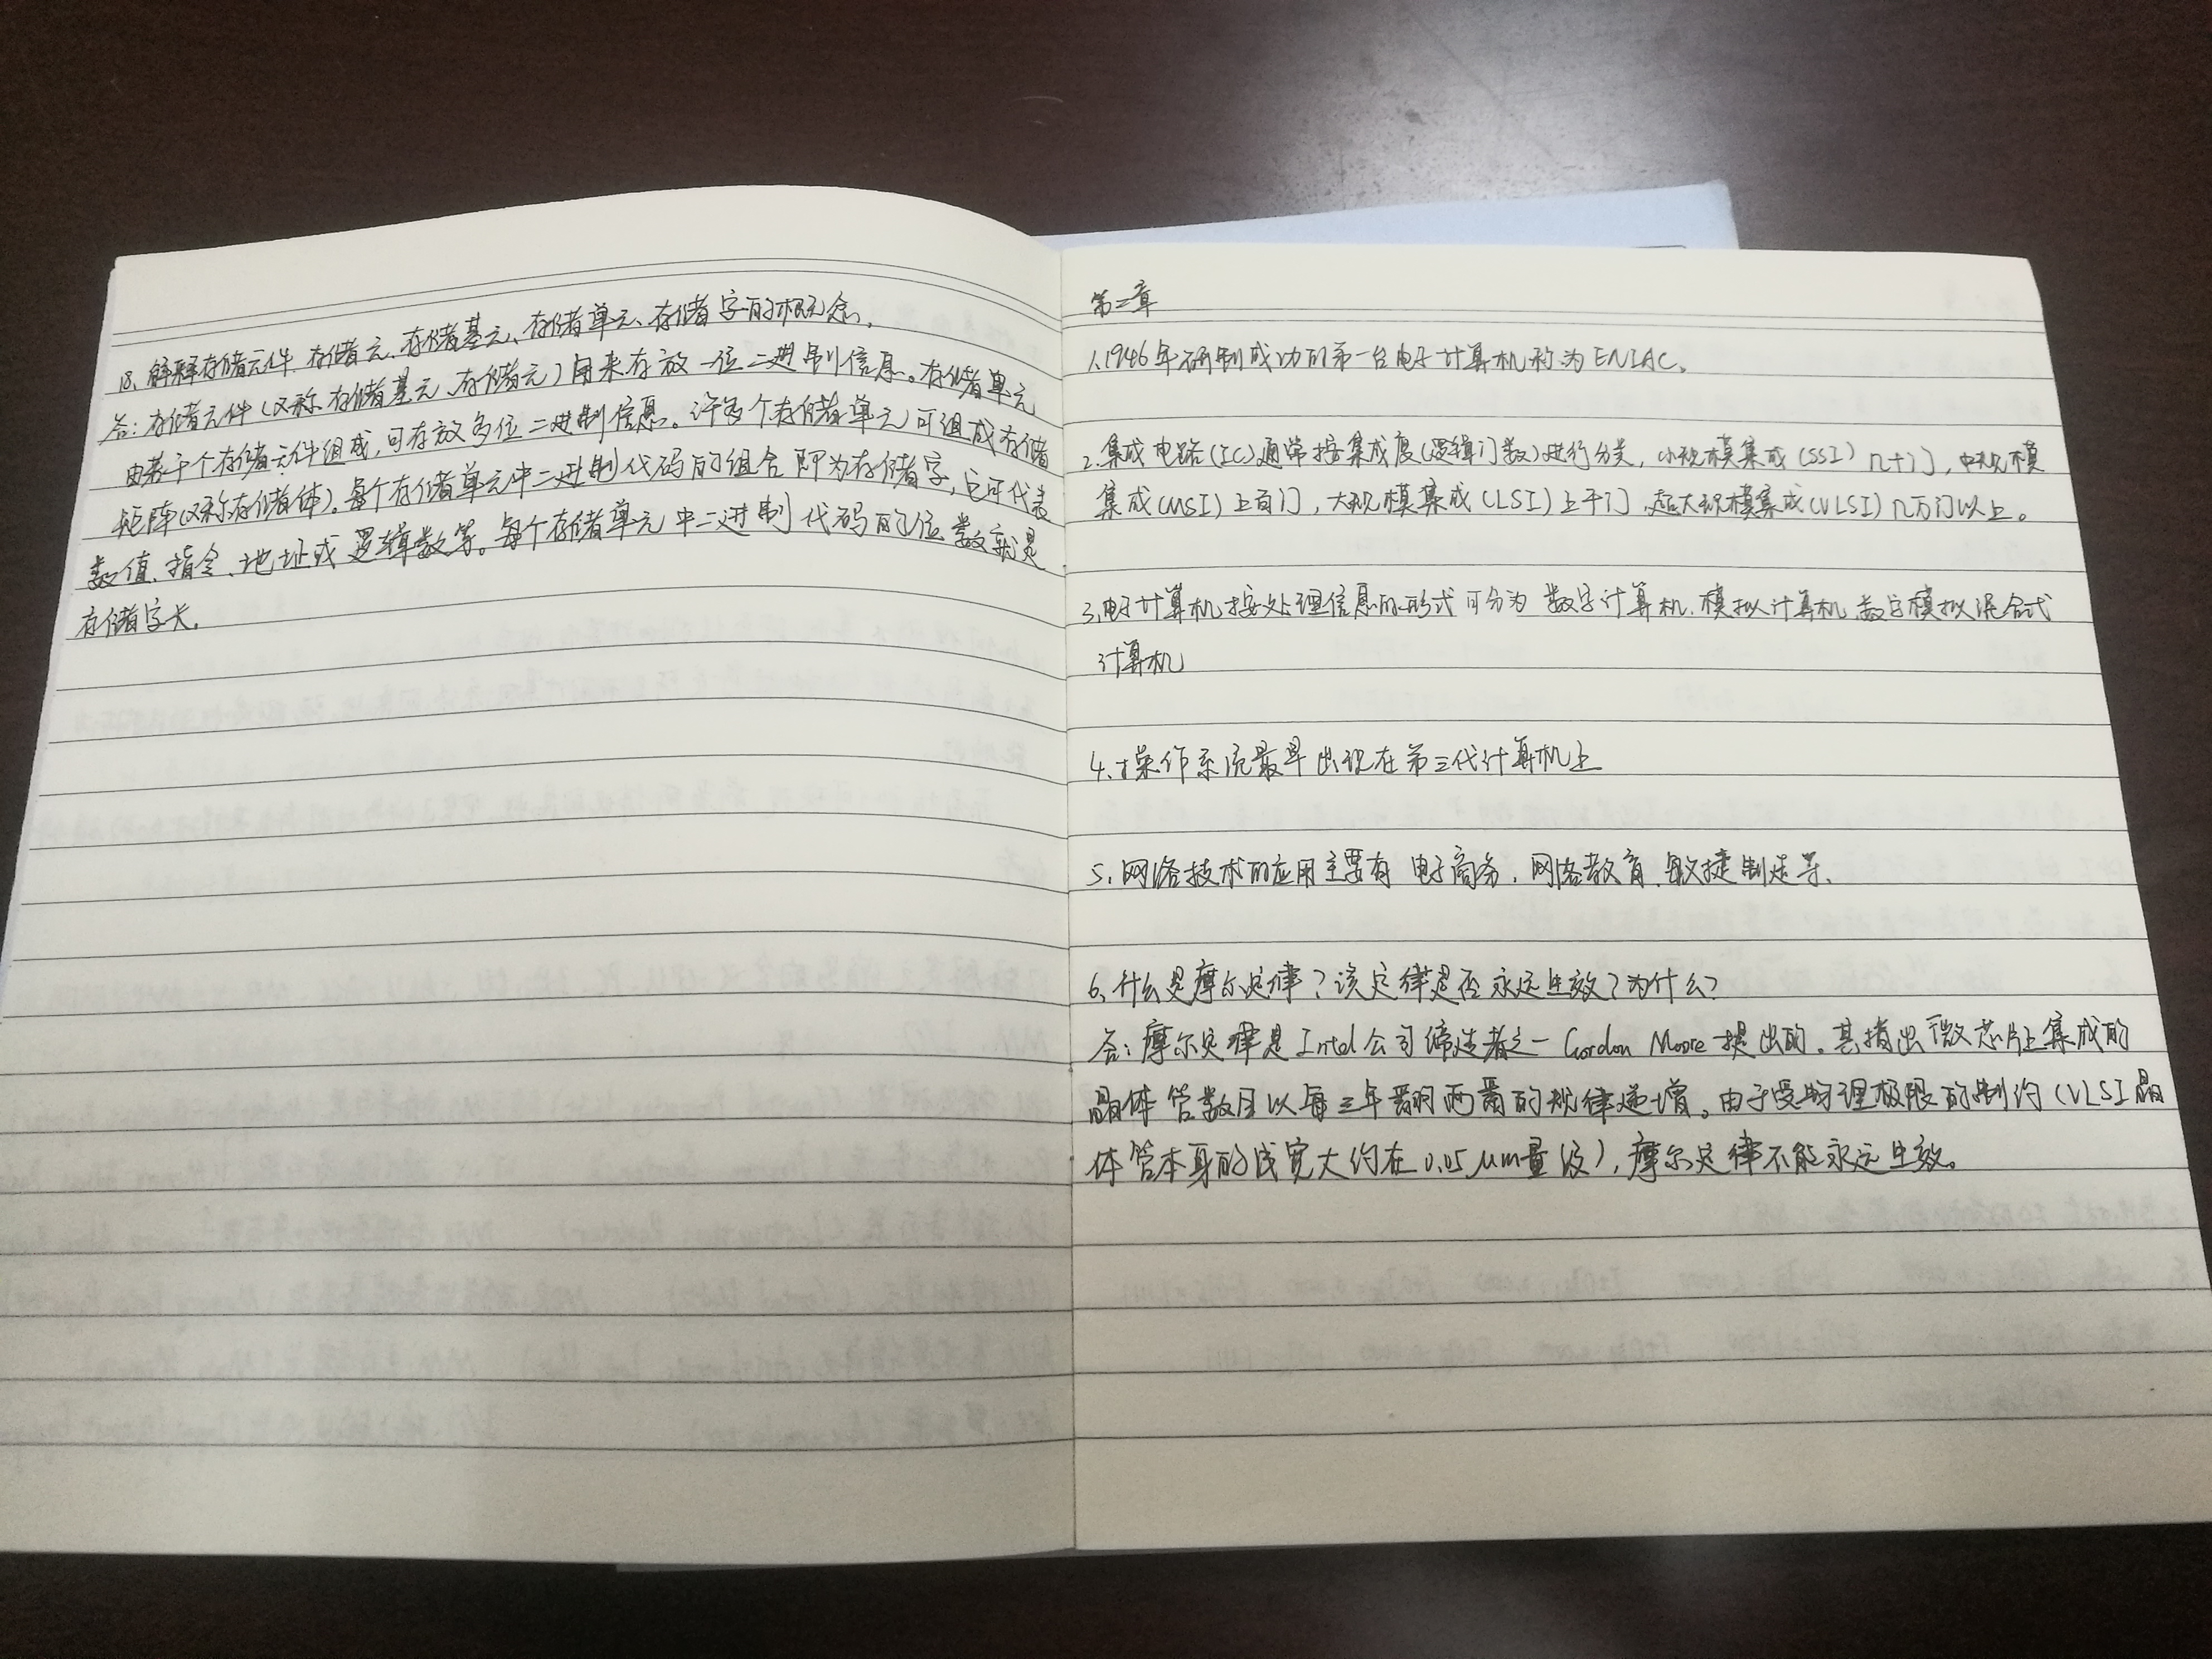 18、解释存储元件、存储元、存储基元、存储单元、存储字的概念。
答：存储元件(又称存储基元、存储元)用来存放一位二进制信息。存储单元
由若干个存储元件组成,可存放多位二进制信息。许多个存储单元可组成存储
矩阵(又称存储体)。每个存储单元中二进制代码的组合即为存储字,它可代表
数值、指令、地址或逻辑数等。每个存储单元中二进制代码的位数就是
存储字长。
第二章
1.1946年研制成功的第一台电子计算机称为ENIAC。
2.集成电路(IC)通常按集成度(逻辑门数)进行分类，小规模集成(SSI)几十门，中规模
集成(MSI)上百门，大规模集成(LSI)上千门，超大规模集成(VLSI)几万门以上。
3、电子计算机按处理信息的形式可分为数字计算机、模拟计算机、数字模拟混合式
计算机
4、操作系统最早出现在第三代计算机上
5、网络技术的应用主要有电子商务、网络教育、敏捷制造等、
6、什么是摩尔定律？该定律是否永远生效？为什么？
答：摩尔定律是Intel公司缔造者之一Gordon Moore提出的。其指出微芯片上集成的
晶体管数目以每三年翻两番的规律递增。由于受物理极限的制约(VLSI晶
体管本身的线宽大约在0.05μm量级)，摩尔定律不能永远生效。